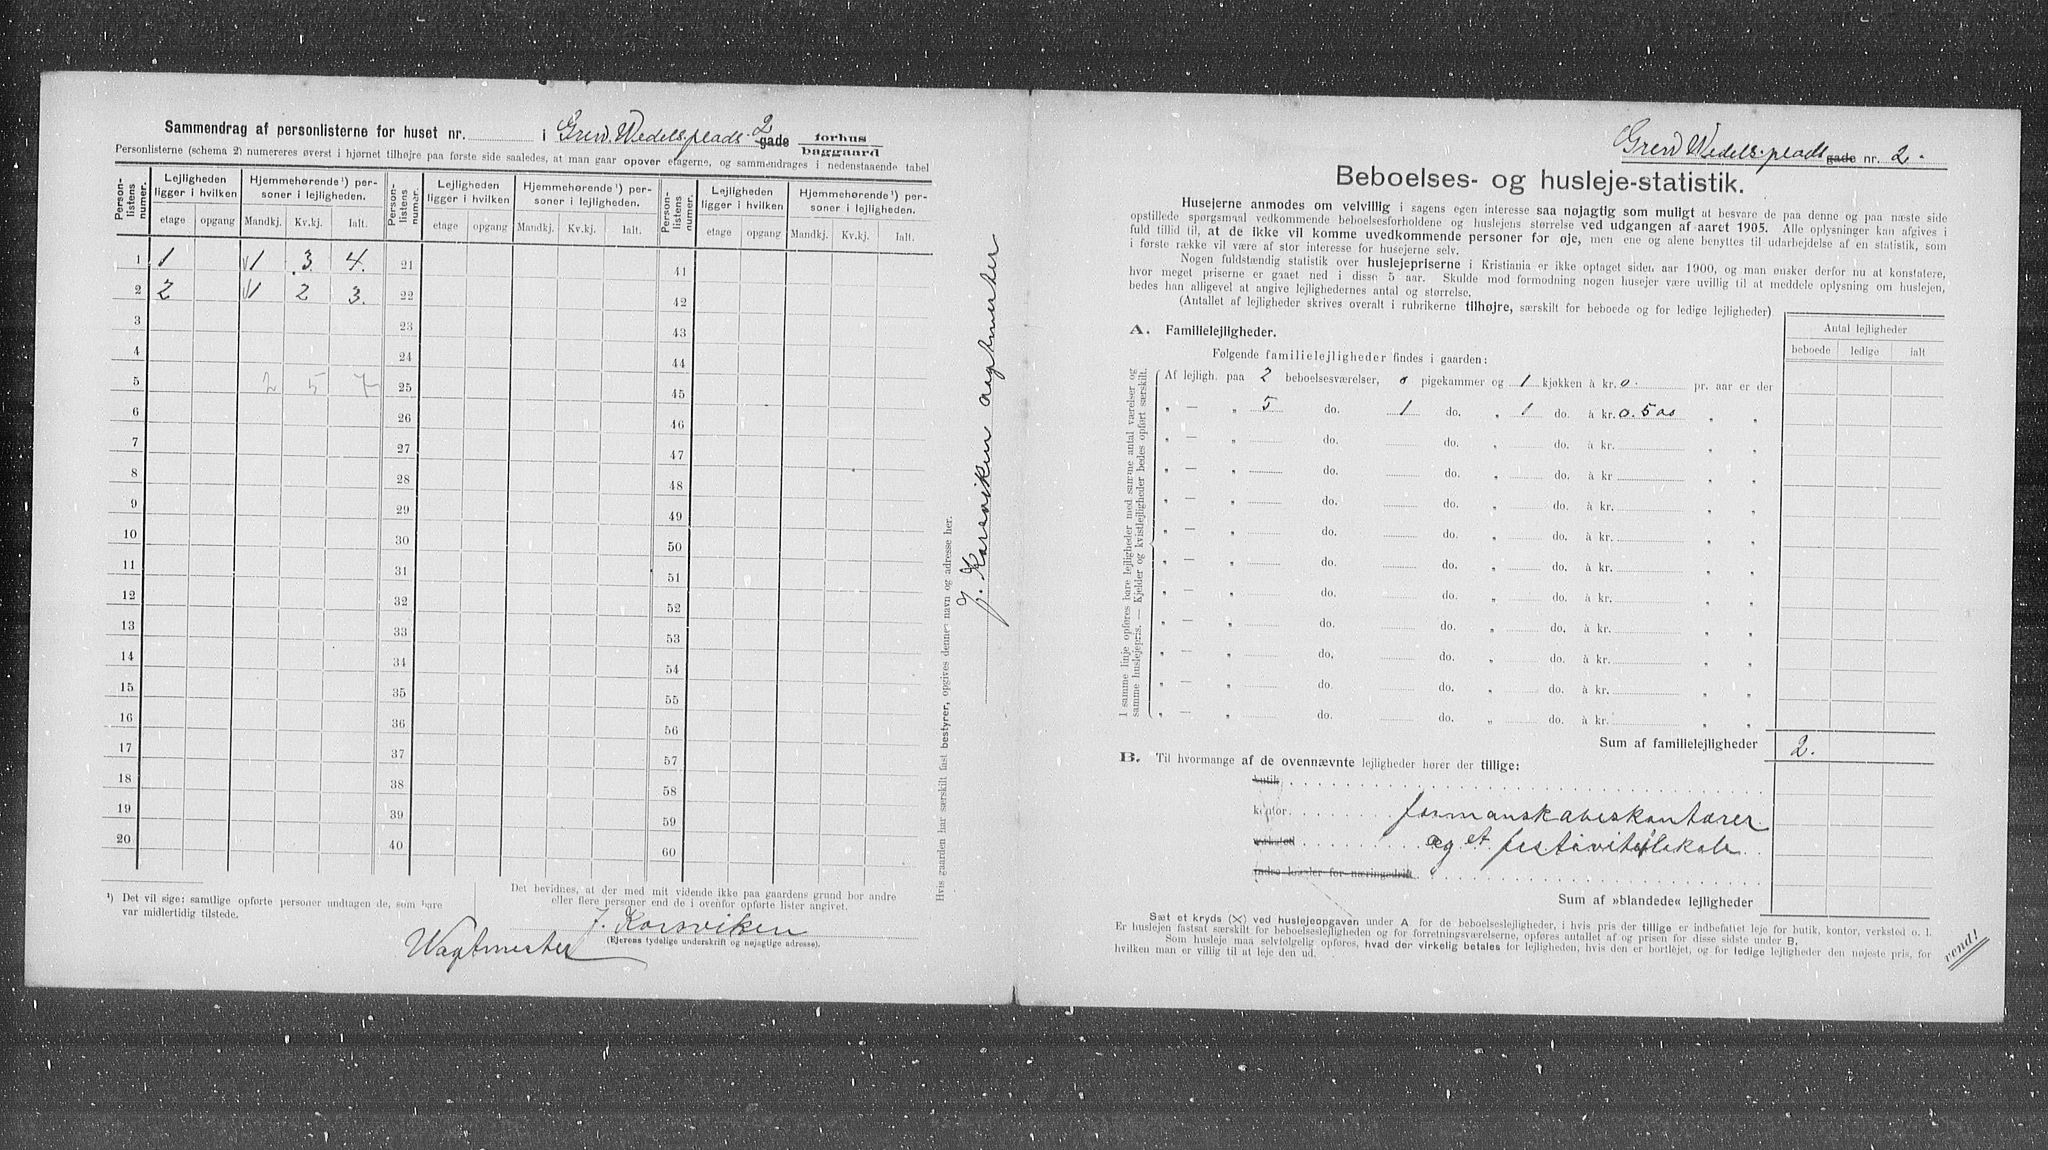 Sammendrag af personlisterne for huset nr. i Grev. Wedels.plads. 2 gade forhus baggaard
Personlisterne (schema 2) numereres øverst i hjørnet tilhøjre paa første side saaledes, at man gaar opover etagerne, og sammendrages i nedenstaaende tabel
Person-listens numer. Lejligheden ligger i hvilken Hjemmehørende¹) personer i lejligheden. Person-listens numer. Lejligheden ligger i hvilken Hjemmehørende¹) personer i lejligheden. Person-listens numer. Lejligheden ligger i hvilken Hjemmehørende¹) personer i lejligheden.
etage opgang Mandkj. Kv.kj. Ialt. etage opgang Mandkj. Kv.kj. Ialt. etage opgang Mandkj. Kv.kj. Ialt.
1 1 1 3 4. 21 41
2 2 1 2 3. 22 42
3 23 43
4 24 44
5 2 5 7 25 45
6 26 46
7 27 47
8 28 48
9 29 49
10 30 50
11 31 51
12 32 52
13 33 53
14 34 54
15 35 55
16 36 56
17 37 57
18 38 58
19 39 59
20 40 60
¹) Det vil sige: samtlige opførte personer undtagen de, som bare
var midlertidig tilstede.
Det bevidnes, at der med mit vidende ikke paa gaardens grund bor andre
eller flere personer end de i ovenfor opførte lister angivet.
J. Korsviken
Wagtmester
(Ejerens tydelige underskrift og nøjagtige adresse).
Hvis gaarden har særskilt fast bestyrer, opgives dennes navn og adresse her.
J. Korsviken
Grev Wedels.plads gade nr. 2.
Beboelses- og husleje-statistik.
Husejerne anmodes om velvillig i sagens egen interesse saa nøjagtig som muligt at besvare de paa denne og paa næste side
opstillede spørgsmaal vedkommende beboelsesforholdene og huslejens størrelse ved udgangen af aaret 1905. Alle oplysninger kan afgives i
fuld tillid til, at de ikke vil komme uvedkommende personer for øje, men ene og alene benyttes til udarbejdelse af en statistik, som
i første række vil være af stor interesse for husejerne selv.
Nogen fuldstændig statistik over huslejepriserne i Kristiania er ikke optaget siden aar 1900, og man ønsker derfor nu at konstatere,
hvor meget priserne er gaaet ned i disse 5 aar. Skulde mod formodning nogen husejer være uvillig til at meddele oplysning om huslejen,
bedes han alligevel at angive lejlighedernes antal og størrelse.
(Antallet af lejligheder skrives overalt i rubrikerne tilhøjre, særskilt for beboede og for ledige lejligheder)
A. Familielejligheder.
Antal lejligheder
beboede ledige ialt
Følgende familielejligheder findes i gaarden:
I samme linje opføres bare lejligheder med samme antal værelser og
samme huslejepris. — Kjelder og kvistlejligheder bedes opført særskilt.
Af lejligh. paa 2 beboelsesværelser, 0 pigekammer og 1 kjøkken à kr. 0. pr. aar er der
„ — „ 5 do. 1 do. „ 1 do. à kr. 0.500 „ „
„ — „ do. do. „ do. à kr. „ „
„ — „ do. do. „ do. à kr. „ „
„ — „ do. do. „ do. à kr. „ „
„ — „ do. do. „ do. à kr. „ „
„ — „ do. do. „ do. à kr. „ „
„ — „ do. do. „ do. à kr. „ „
„ — „ do. do. „ do. à kr. „ „
„ — „ do. do. „ do. à kr. „ „
„ — „ do. do. „ do. à kr. „ „
„ — „ do. do. „ do. à kr. „ „
Sum af familielejligheder 2.
B. Til hvormange af de ovennævnte lejligheder hører der tillige:
butik
kontor formanskabeskontorer
verksted og et festivitetslokale
andre lokaler for næringsdrift
Sum af »blandede« lejligheder
Sæt et kryds (X) ved huslejeopgaven under A for de beboelseslejligheder, i hvis pris der tillige er indbefattet leje for butik, kontor, verksted o. l.
Er huslejen fastsat særskilt for beboelseslejligheden og for forretningsværelserne, opføres antallet af og prisen for disse sidste under B.
Som husleje maa selvfølgelig opføres, hvad der virkelig betales for lejligheden, hvis den er bortlejet, og for ledige lejligheder den nøjeste pris, for
hvilken man er villig til at leje den ud.
vend!